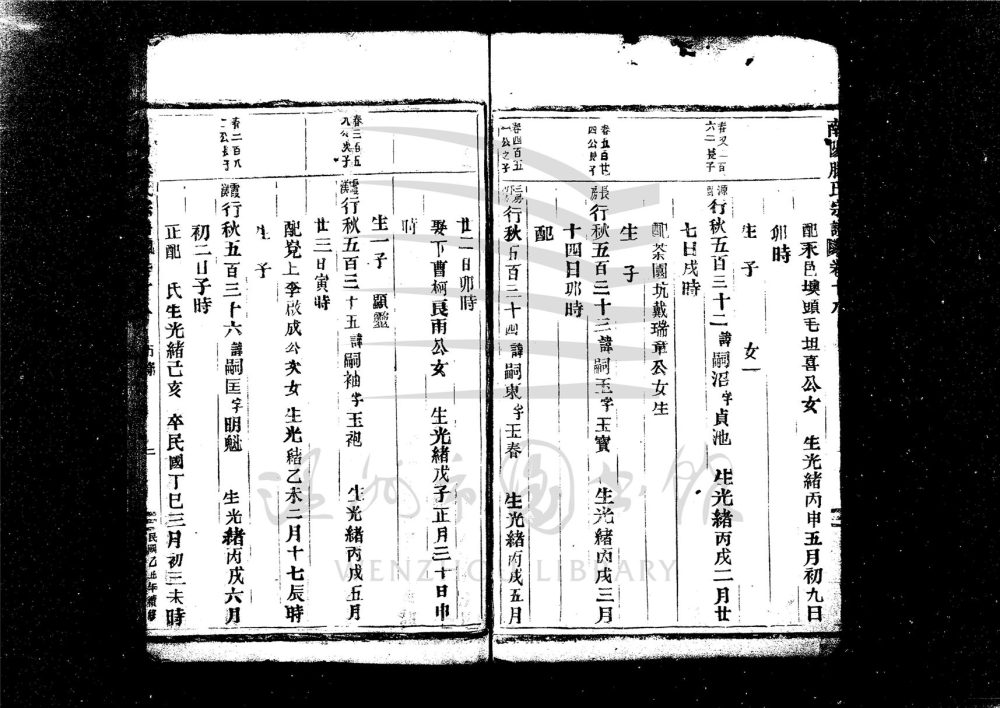 南陽滕氏宗譜
配永邑墺頭毛坦喜公女 生光緒丙申五月初九日
卯時
生子 女一
行秋五百三十二諱嗣沼字貞池 生光緒丙戌二月廿
七日戌時
配茶園坑戴瑞章公女生
生子
春五百廿四公長子
長房 行秋五百三十三諱嗣玉字玉寶 生光緒丙戌三月
十四日卯時
配
春四百五
行秋五百三十四諱嗣東字玉春 生光緒丙戌五月
廿二日卯時
娶下曹柯良甫公女 生光緒戊子正月三十日申
時
生一子 顯靈
春三百五九公次子
霞溪 行秋五百三十五諱嗣袖字玉袍 生光緒丙戌五月
廿三日寅時
配党上李啟成公次女 生光緒乙未二月十七辰時
生子
春二百八
霞溪 行秋五百三十六諱嗣匡字明魁 生光緒丙戌六月
初二日子時
正配 氏生光緒己亥 卒民國丁巳三月初三未時
民國乙丑年續修
WENZHOU LIBRARY